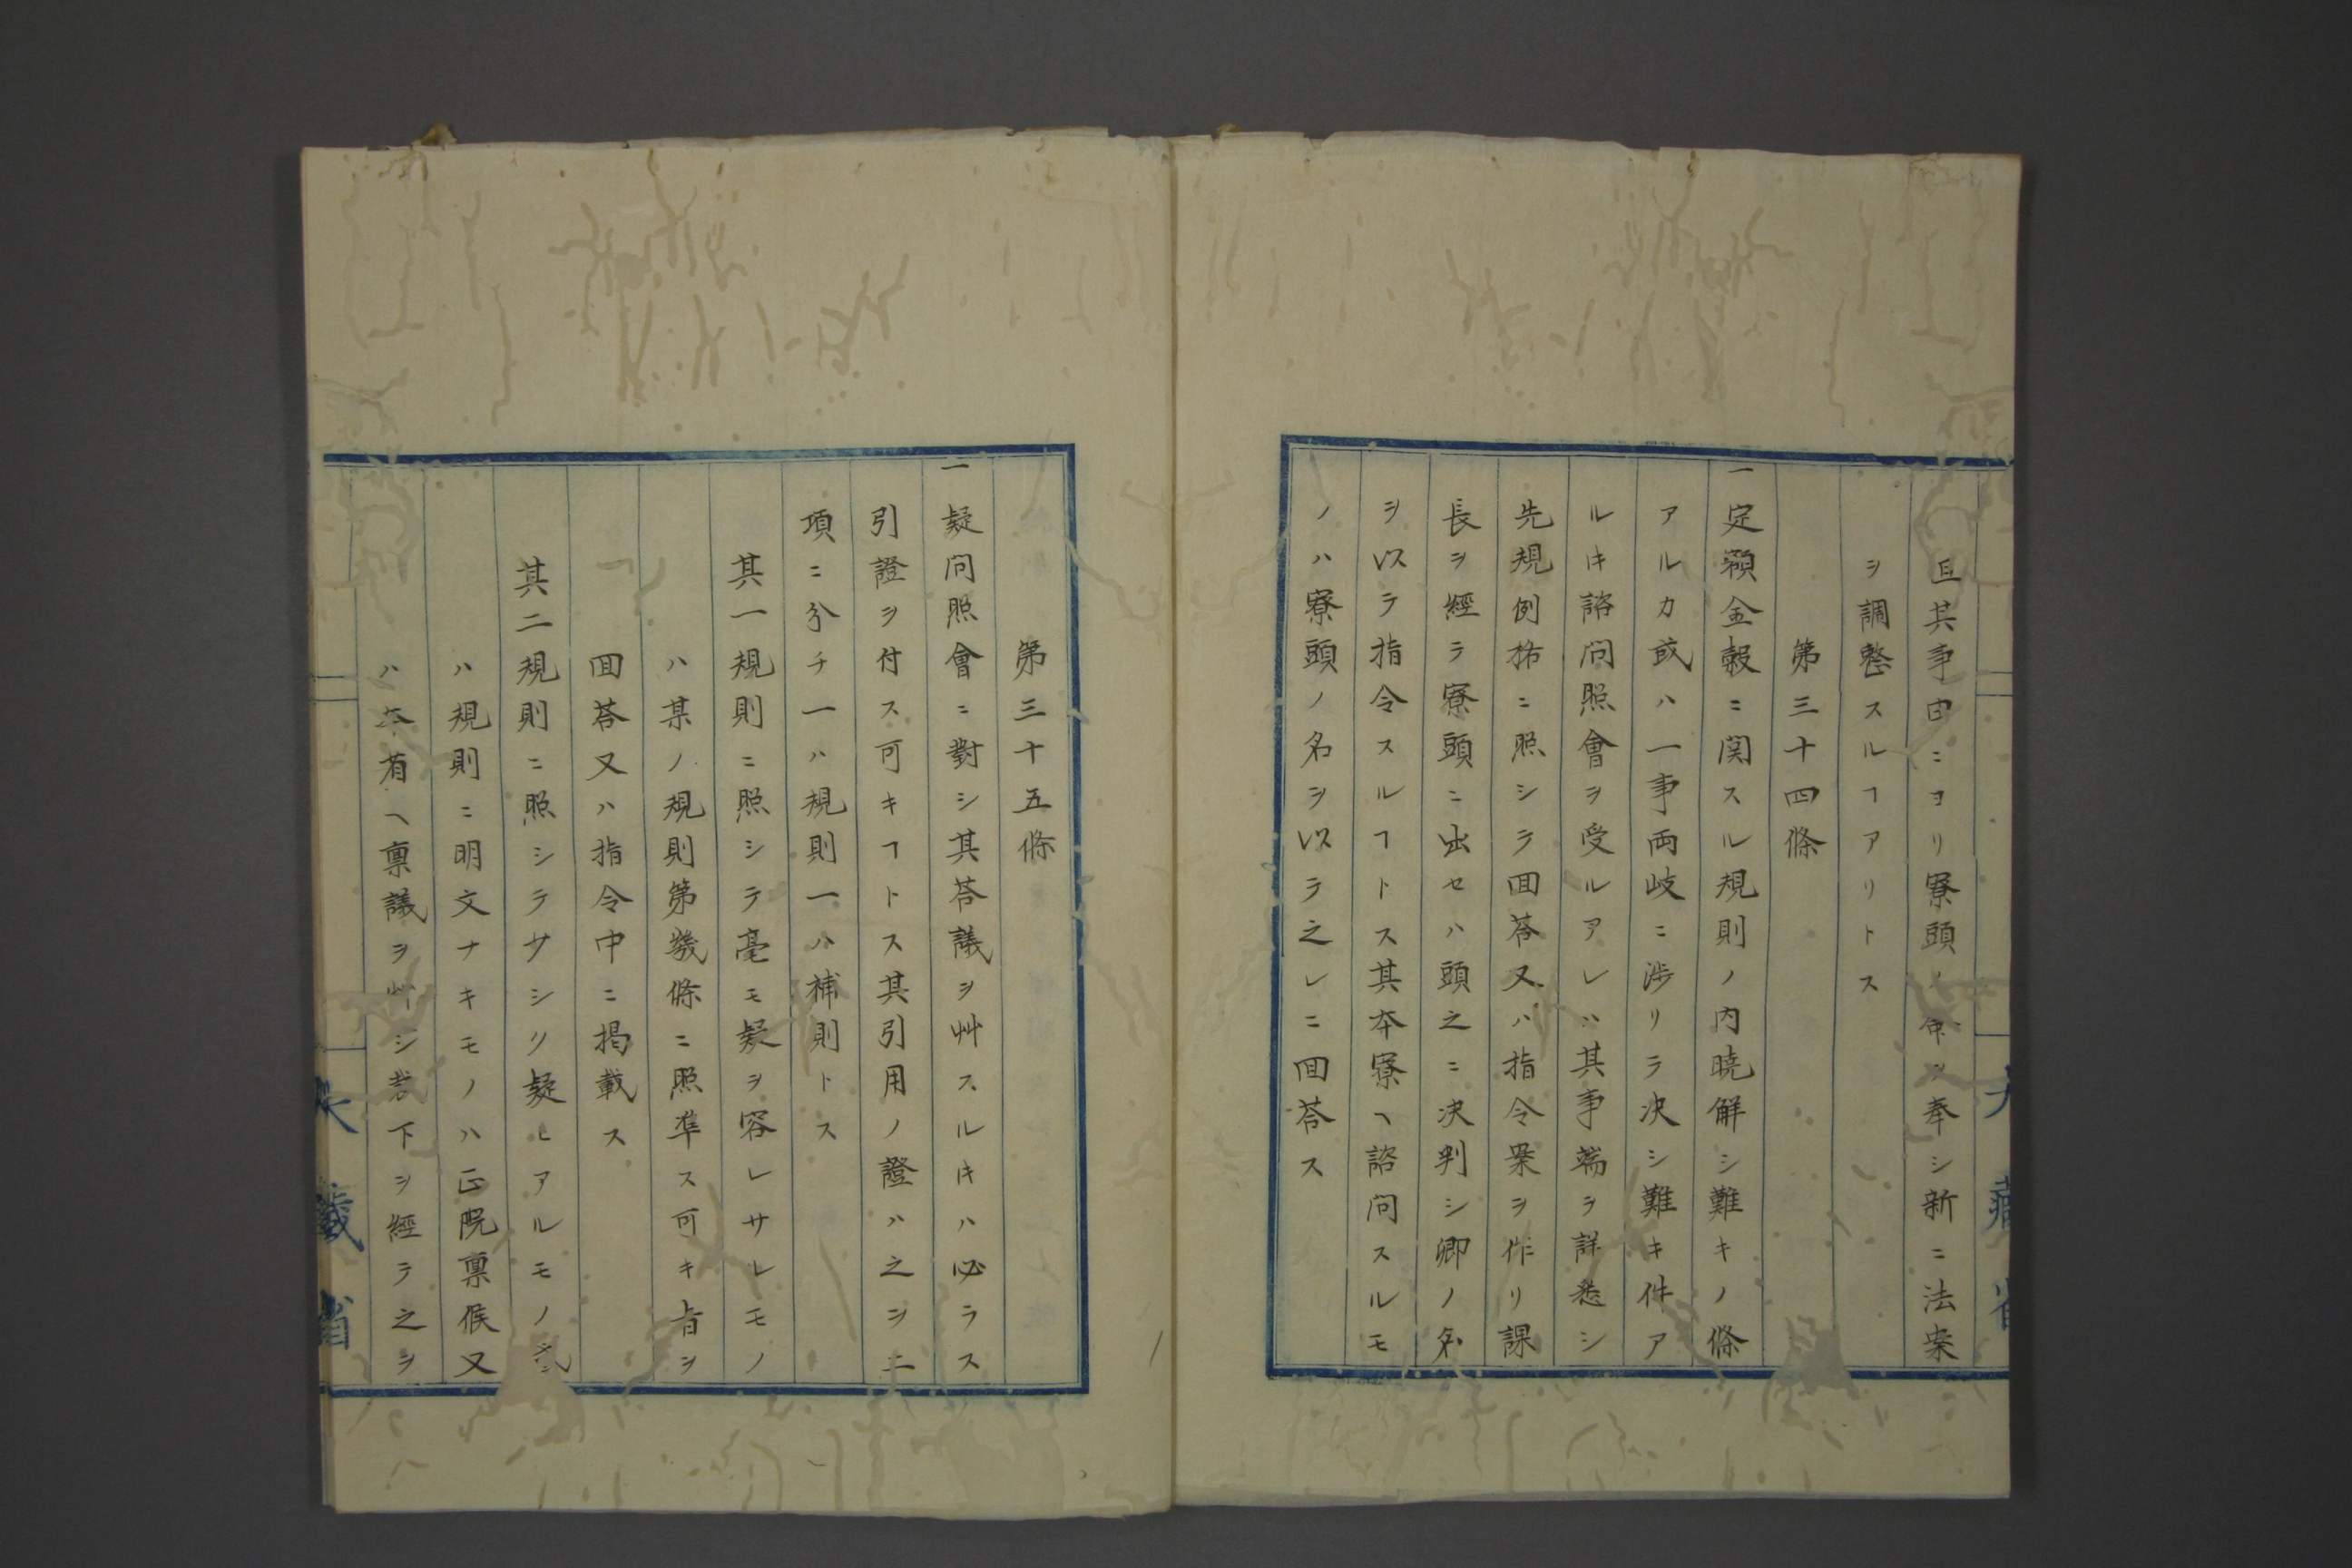 且其事由ニヨリ寮頭ノ命ヲ奉シ新ニ法案
ヲ調整スルヿアリトス
第三十四條
一定額金穀ニ関スル規則ノ内曉解シ難キノ條
アルカ或ハ一事両岐ニ渉リテ决シ難キ件ア
ルキ諮問照會ヲ受ルアレハ其事端ヲ詳悉シ
先規例格ニ照シテ回荅又ハ指令案ヲ作リ課
長ヲ經テ寮頭ニ出セハ頭之ニ决判シ卿ノ名
ヲ以テ指令スルヿトス其本寮ヘ諮問スルモ
ノハ寮頭ノ名ヲ以テ之レニ回荅ス
大藏省
第三十五條
一疑問照會ニ對シ其荅議ヲ艸スルキハ必ラス
引證ヲ付ス可キヿトス其引用ノ證ハ之ヲ二
項ニ分チ一ハ規則一ハ補則トス
其一規則ニ照シテ毫モ疑ヲ容レサレモノ
ハ某ノ規則第幾條ニ照準ス可キ旨ヲ
回荅又ハ指令中ニ掲載ス
其二規則ニ照シテサシリ疑ヒアルモノ或
ハ規則ニ明文ナキモノハ正院禀候又
ハ本省ヘ禀議ヲ艸シ裁下ヲ經テ之ヲ
大藏省